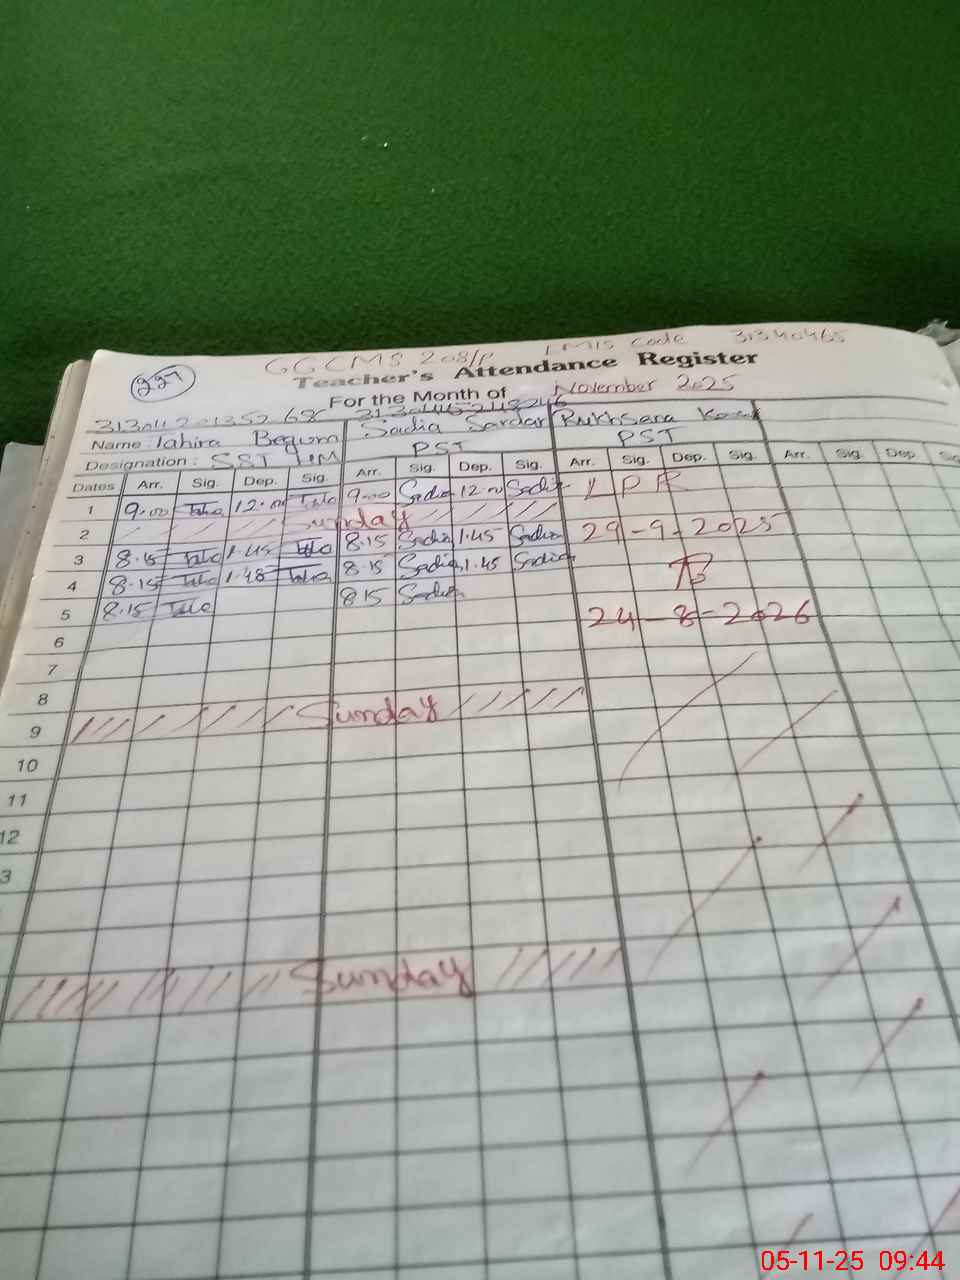 227
GGCMS 208/P LMIS Code 31340465
Teacher's Attendance Register
For the Month of November 2025
Name Tahira Begum Sadia Sardar Rukhsana
Designation: SST PST PST
Dates Arr. Sig. Dep. Sig. Arr. Sig. Dep. Sig. Arr. Sig. Dep. Sig. Arr. Sig. Dep Sig
1 9.00 12.00 9.00 Sadia 12.00 Sadia LPR
2 Sunday 29-9-2025
3 8.15 1.45 8.15 Sadia 1.45 Sadia
4 8.15 1.45 8.15 Sadia 1.45 Sadia To
5 8.15 8.15 Sadia 24-8-2026
6
7
8
9 Sunday
10
11
12
3
Sunday
05-11-25 09:44